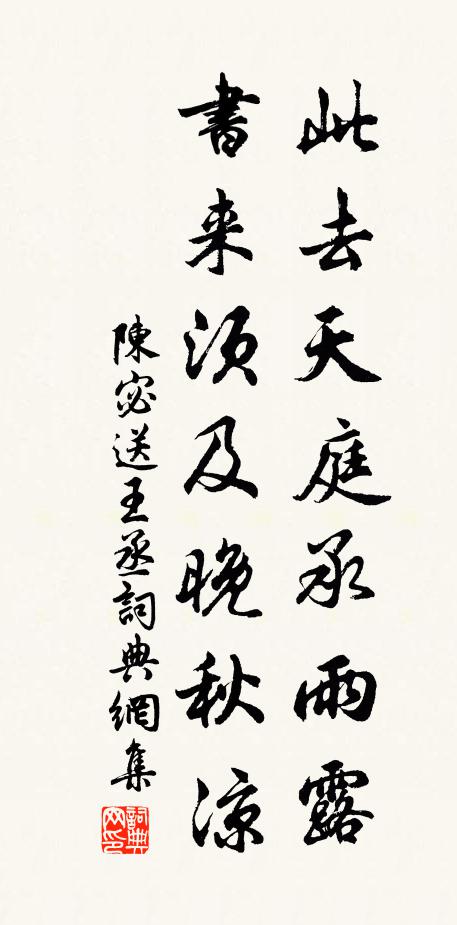 此去天庭承雨露
書来須及晚秋涼
陳宓送王丞詞典網集
詞典网印